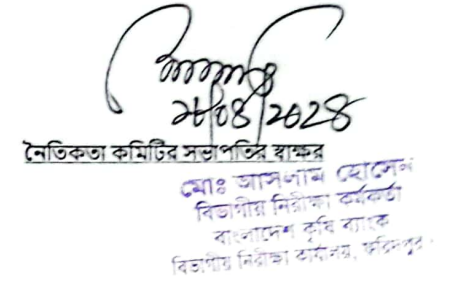 ২৮/০৪/২০২৪
নৈতিকতা কমিটির সভাপতির স্বাক্ষর
মোঃ আসলাম হোসেন
বিভাগীয় নিরীক্ষা কর্মকর্তা
বাংলাদেশ কৃষি ব্যাংক
বিভাগীয় নিরীক্ষা কার্যালয়, ফরিদপুর।